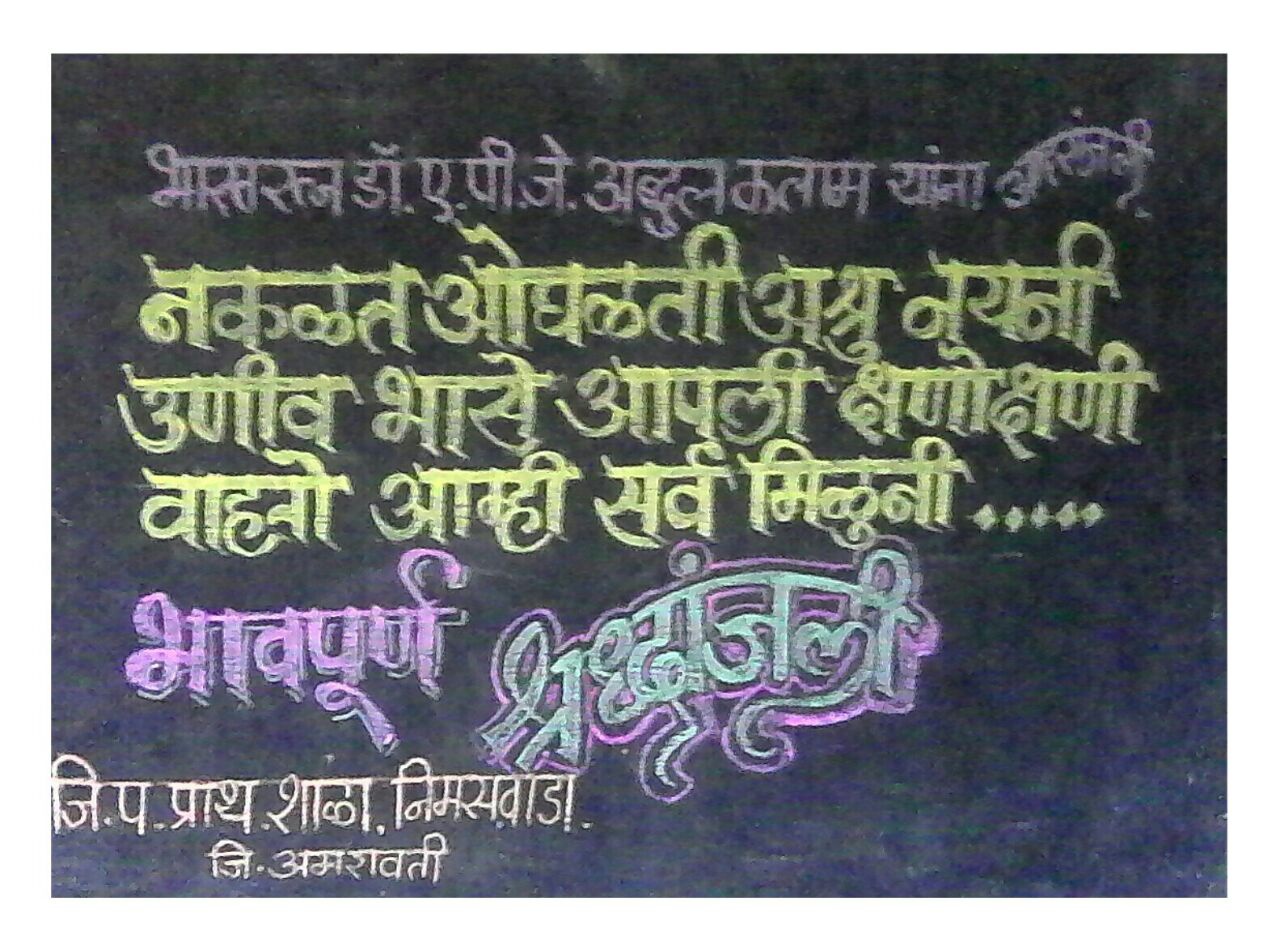 भारतरत्न डॉ. ए. पी. जे. अब्दुल कलाम यांना
नकळत ओघळती अश्रु नयनी
उणीव भासे आपली क्षणोक्षणी
वाहतो आम्ही सर्व मिळुनी .....
भावपूर्ण श्रध्दांजली
जि. प. प्राथ. शाळा, निमसवाडा.
जि. अमरावती